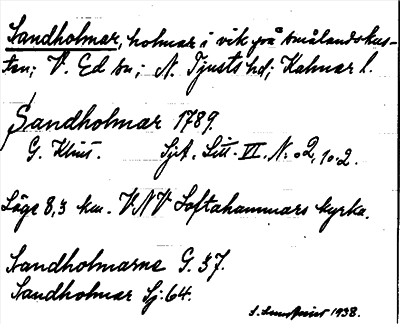 Sandholmar, holmar i vik på Smålandskus-
ten; V. Ed sn; N. Tjusts hd; Kalmar l.
Sandholmar 1789.
G. Klint. Sjöt. Litt. VI. N:o 2, 10.2.
Läge 8,3 km. VNV Loftahammars kyrka.
Sandholmarne G. 37.
Sandholmar Sj. 64.
1938.